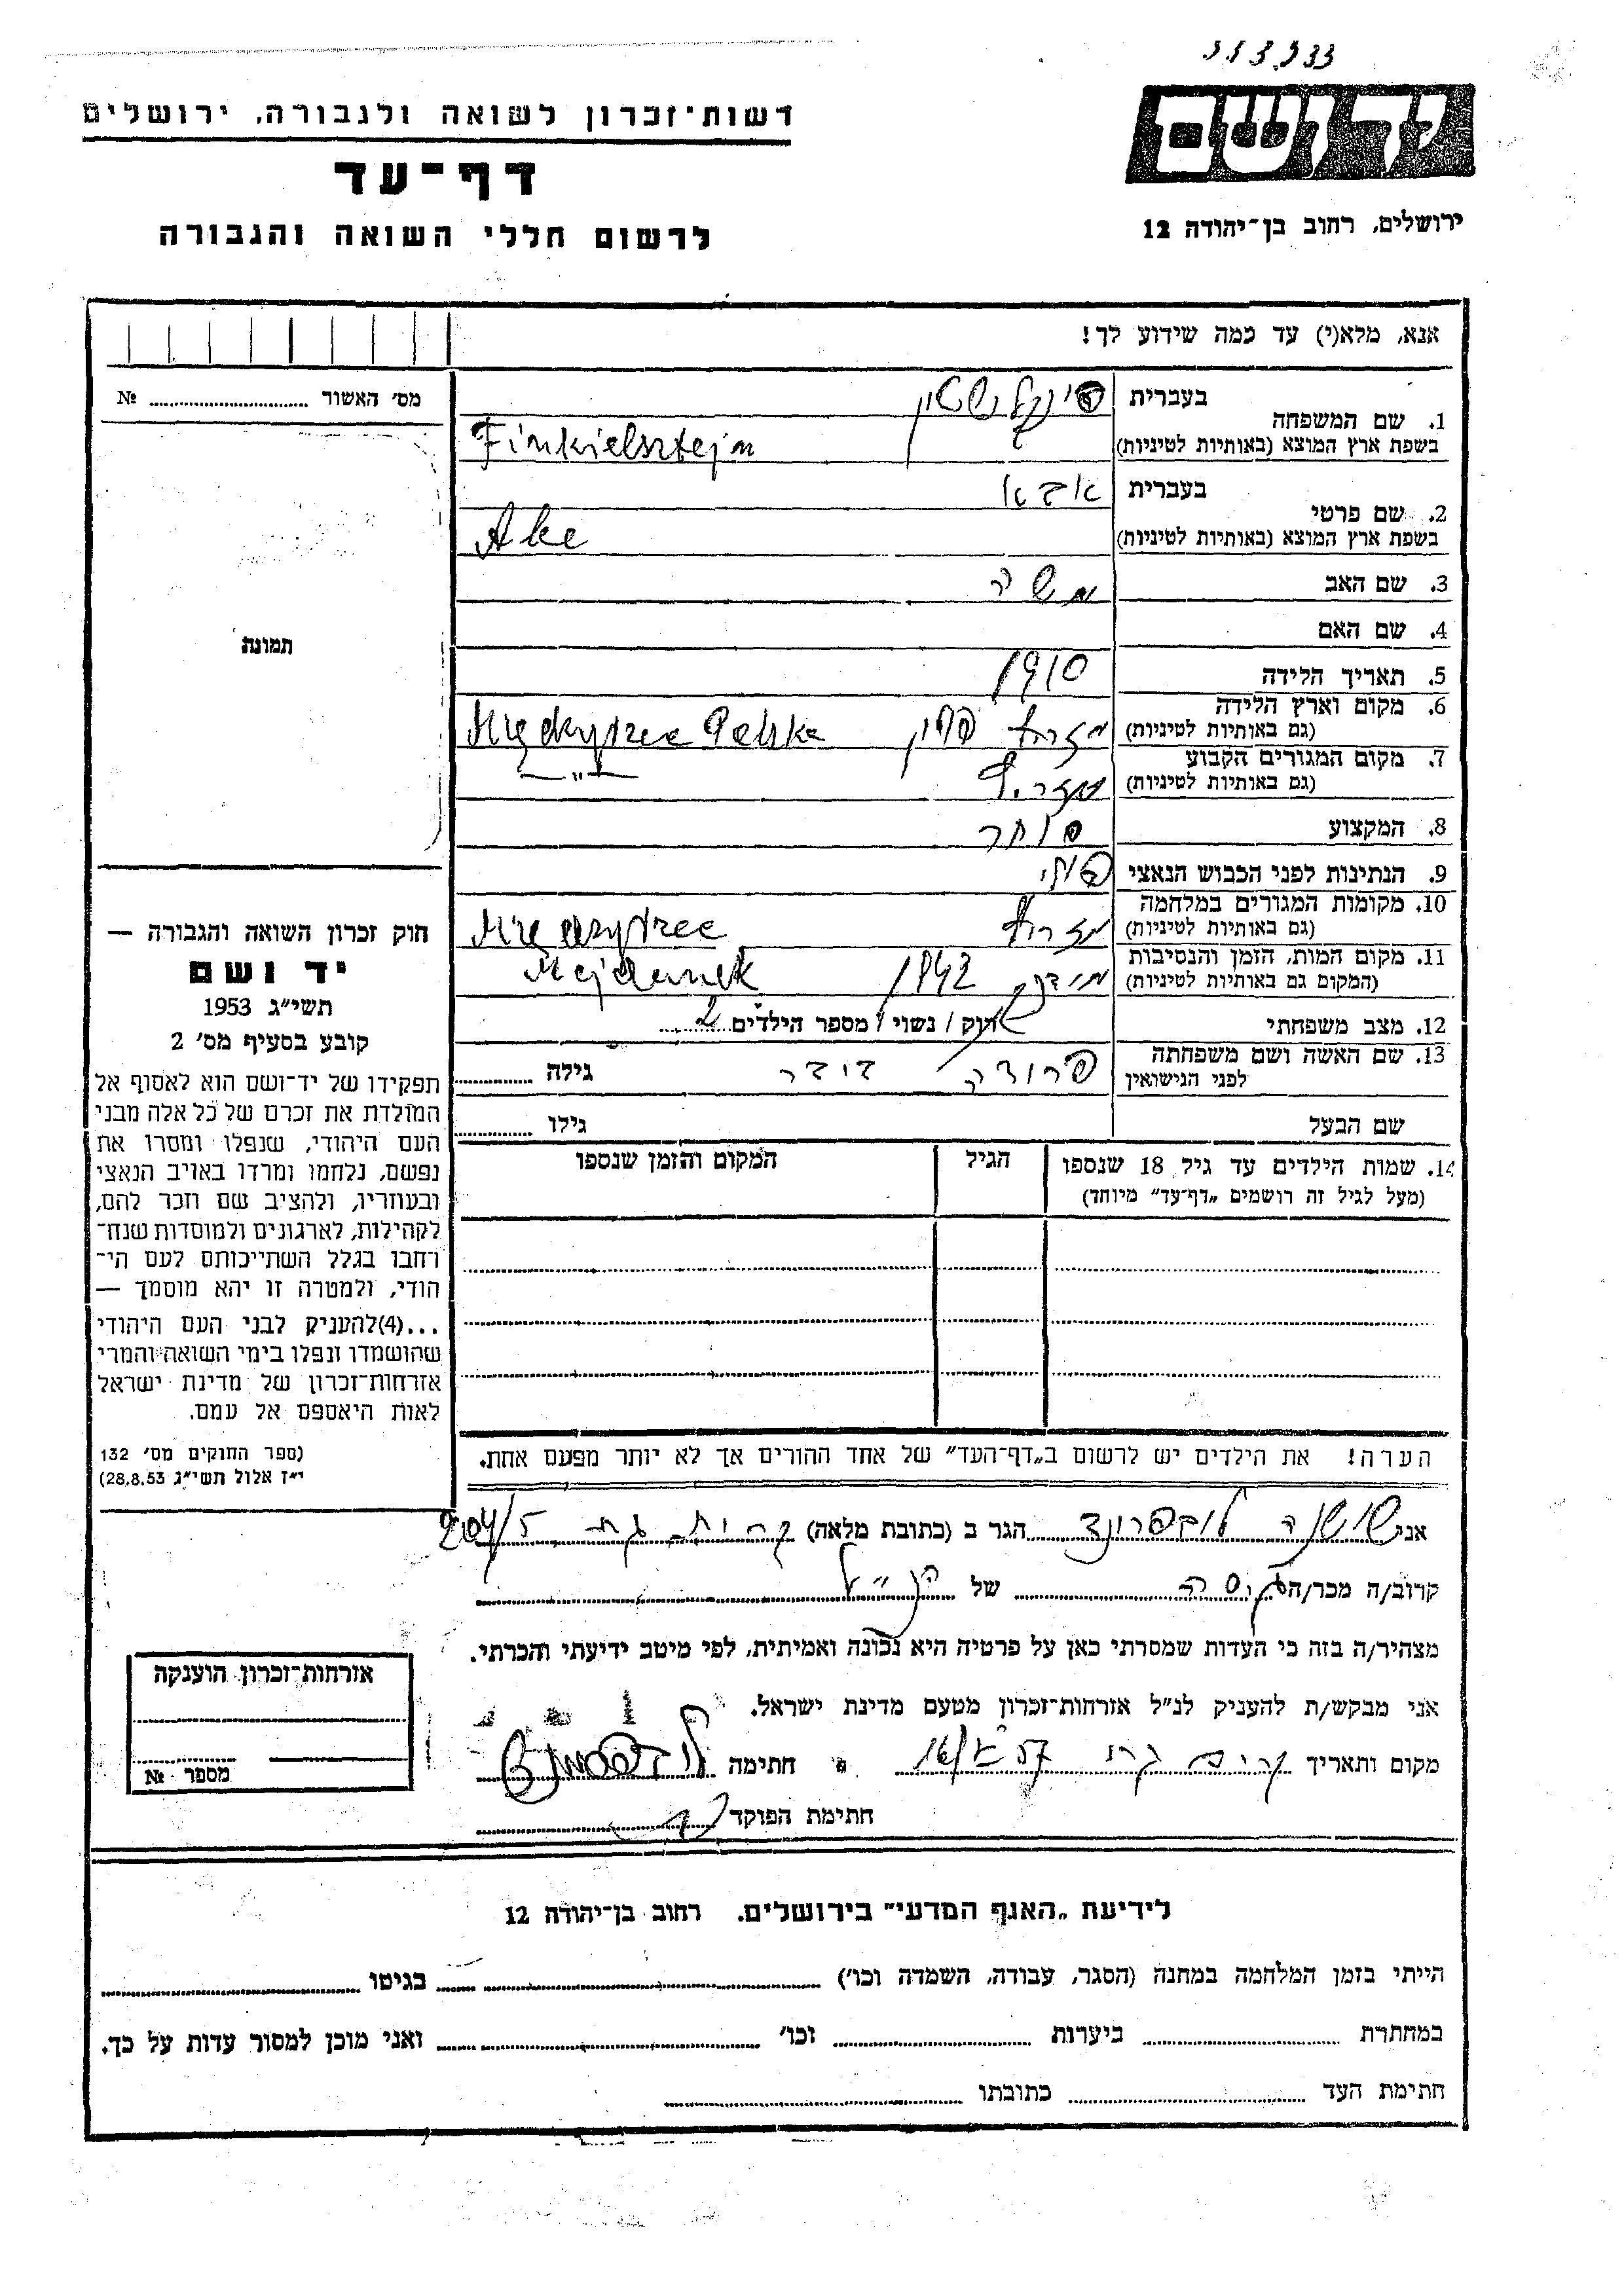 רשות־זכרון לשואה ולגבורה, ירושלים
דף־עד
לרשום חללי השואה והגבורה
יד ושם
ירושלים, רחוב בן־יהודה 12
אנא, מלא(י) עד כמה שידוע לך!
מס' האשור № 
תמונה
1. שם המשפחה
בעברית פינקלשטיין
בשפת ארץ המוצא (באותיות לטיניות) Finkielsztejn
2. שם פרטי
בעברית אבא
בשפת ארץ המוצא (באותיות לטיניות)
3. שם האב משה
4. שם האם
5. תאריך הלידה 1910
6. מקום וארץ הלידה
(גם באותיות לטיניות) מזריץ פולין
7. מקום המגורים הקבוע
(גם באותיות לטיניות) מזריץ —"—
8. המקצוע סוחר
9. הנתינות לפני הכבוש הנאצי פולני
10. מקומות המגורים במלחמה
(גם באותיות לטיניות) מזריץ
11. מקום המות, הזמן והנסיבות
(המקום גם באותיות לטיניות) מידנק 1942 Majdanek
12. מצב משפחתי רווק / נשוי / מספר הילדים 2
13. שם האשה ושם משפחתה
לפני הנישואין גילה
שם הבעל גילו
14. שמות הילדים עד גיל 18 שנספו הגיל המקום והזמן שנספו
(מעל לגיל זה רושמים „דף־עד” מיוחד)
הערה! את הילדים יש לרשום ב„דף־העד” של אחד ההורים אך לא יותר מפעם אחת.
חוק זכרון השואה והגבורה —
יד ושם
תשי״ג 1953
קובע בסעיף מס' 2
תפקידו של יד־ושם הוא לאסוף אל
המולדת את זכרם של כל אלה מבני
העם היהודי, שנפלו ומסרו את
נפשם, נלחמו ומרדו באויב הנאצי
ובעוזריו, ולהציב שם וזכר להם,
לקהילות, לארגונים ולמוסדות שנח־
רחבו בגלל השתייכותם לעם הי־
הודי, ולמטרה זו יהא מוסמך —
...(4)להעניק לבני העם היהודי
שהושמדו ונפלו בימי השואה והמרי
אזרחות־זכרון של מדינת ישראל
לאות היאספם אל עמם.
(ספר החוקים מס' 132
י״ז אלול תשי״ג 28.8.53)
אני שושנה הגר ב (כתובת מלאה) קרית גת 204/5
קרוב/ה מכר/ה גיסה של הנ״ל
מצהיר/ה בזה כי העדות שמסרתי כאן על פרטיה היא נכונה ואמיתית, לפי מיטב ידיעתי והכרתי.
אני מבקש/ת להעניק לנ״ל אזרחות־זכרון מטעם מדינת ישראל.
מקום ותאריך קרית גת חתימה
חתימת הפוקד
אזרחות־זכרון הוענקה
מספר №
לידיעת „האגף המדעי” בירושלים, רחוב בן־יהודה 12
הייתי בזמן המלחמה במחנה (הסגר, עבודה, השמדה וכו') בגיטו
במחתרת ביערות וכו' ואני מוכן למסור עדות על כך.
חתימת העד כתובתו